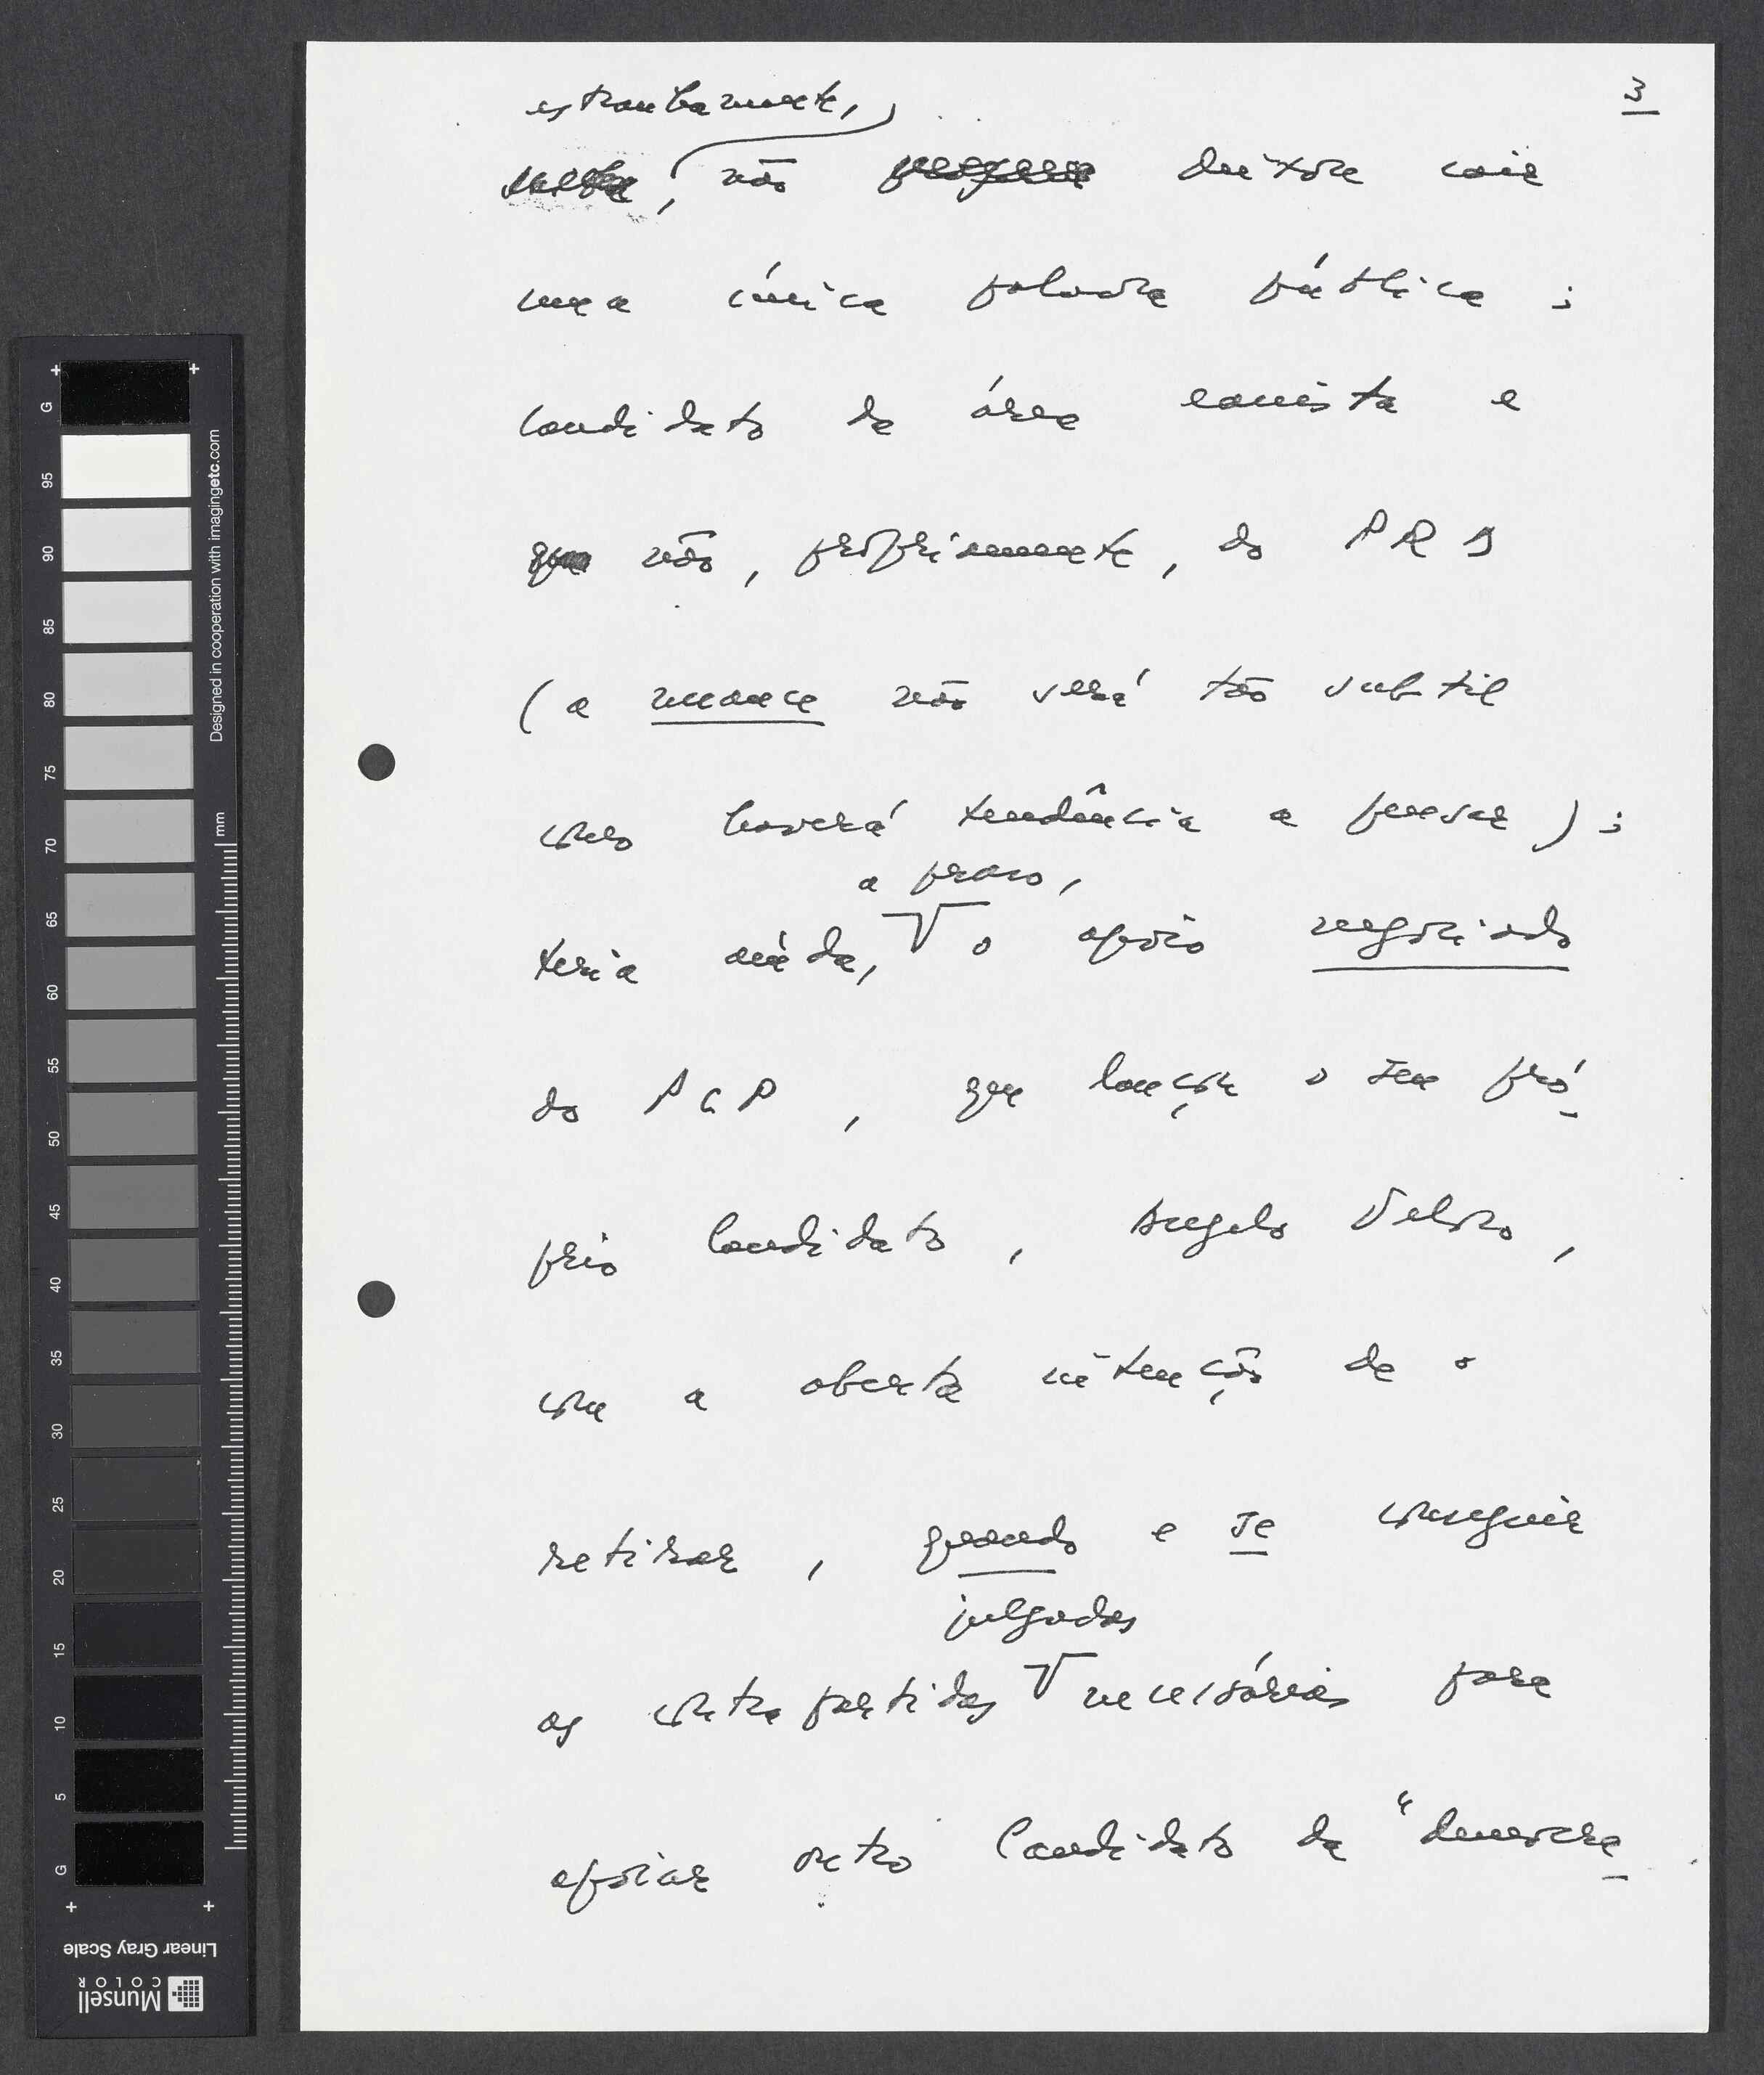 3
estranhamente,
, não deixou cair
uma única palavra pública ;
candidato da área eanista e
não, propriamente, do PRD
(a nuance não será tão subtil
como haverá tendência a pensar) ;
a prazo,
teria ainda, o apoio negociado
do PCP, que lançou o seu pró-
prio candidato, Angelo Veloso,
com a aberta intenção de o
retirar, quando e se conseguir
julgadas
as contrapartidas necessárias para
apoiar outro candidato da "democra-
G
95
90
85
80
75
70
65
60
55
50
45
40
35
30
25
20
15
10
5
G
mm
Designed in cooperation with imagingetc.com
Linear Gray Scale
Munsell
COLOR